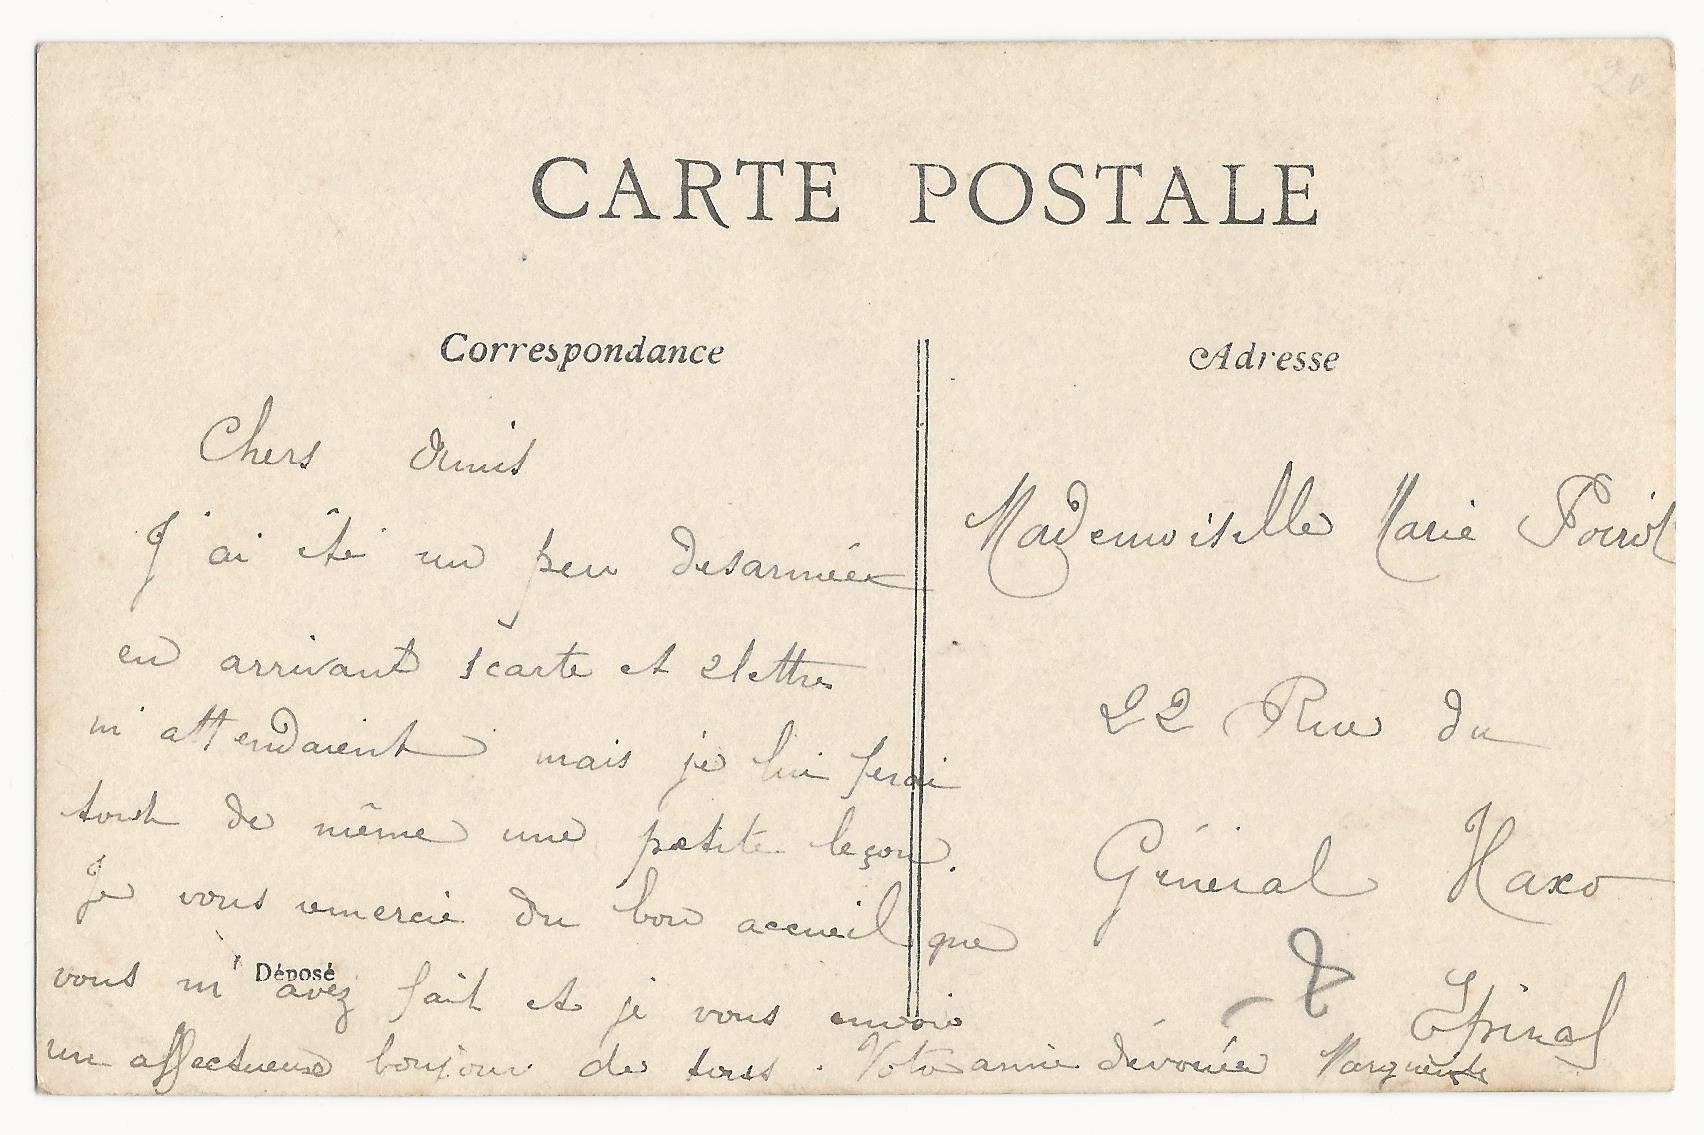 CARTE POSTALE
Correspondance
Chers Amis
J'ai été un peu desarmée
en arrivant 1 carte et 2 lettres
m'attendaient mais je lui ferai
tout de même une petite leçon.
Je vous remercie du bon accueil que
vous m'avez fait et je vous envoie
un affectueux bonjour de tous. Votre amie dévouée Marguerite
Déposé
Adresse
Mademoiselle Marie Poirot
22 Rue du
Général Haxo
Epinal